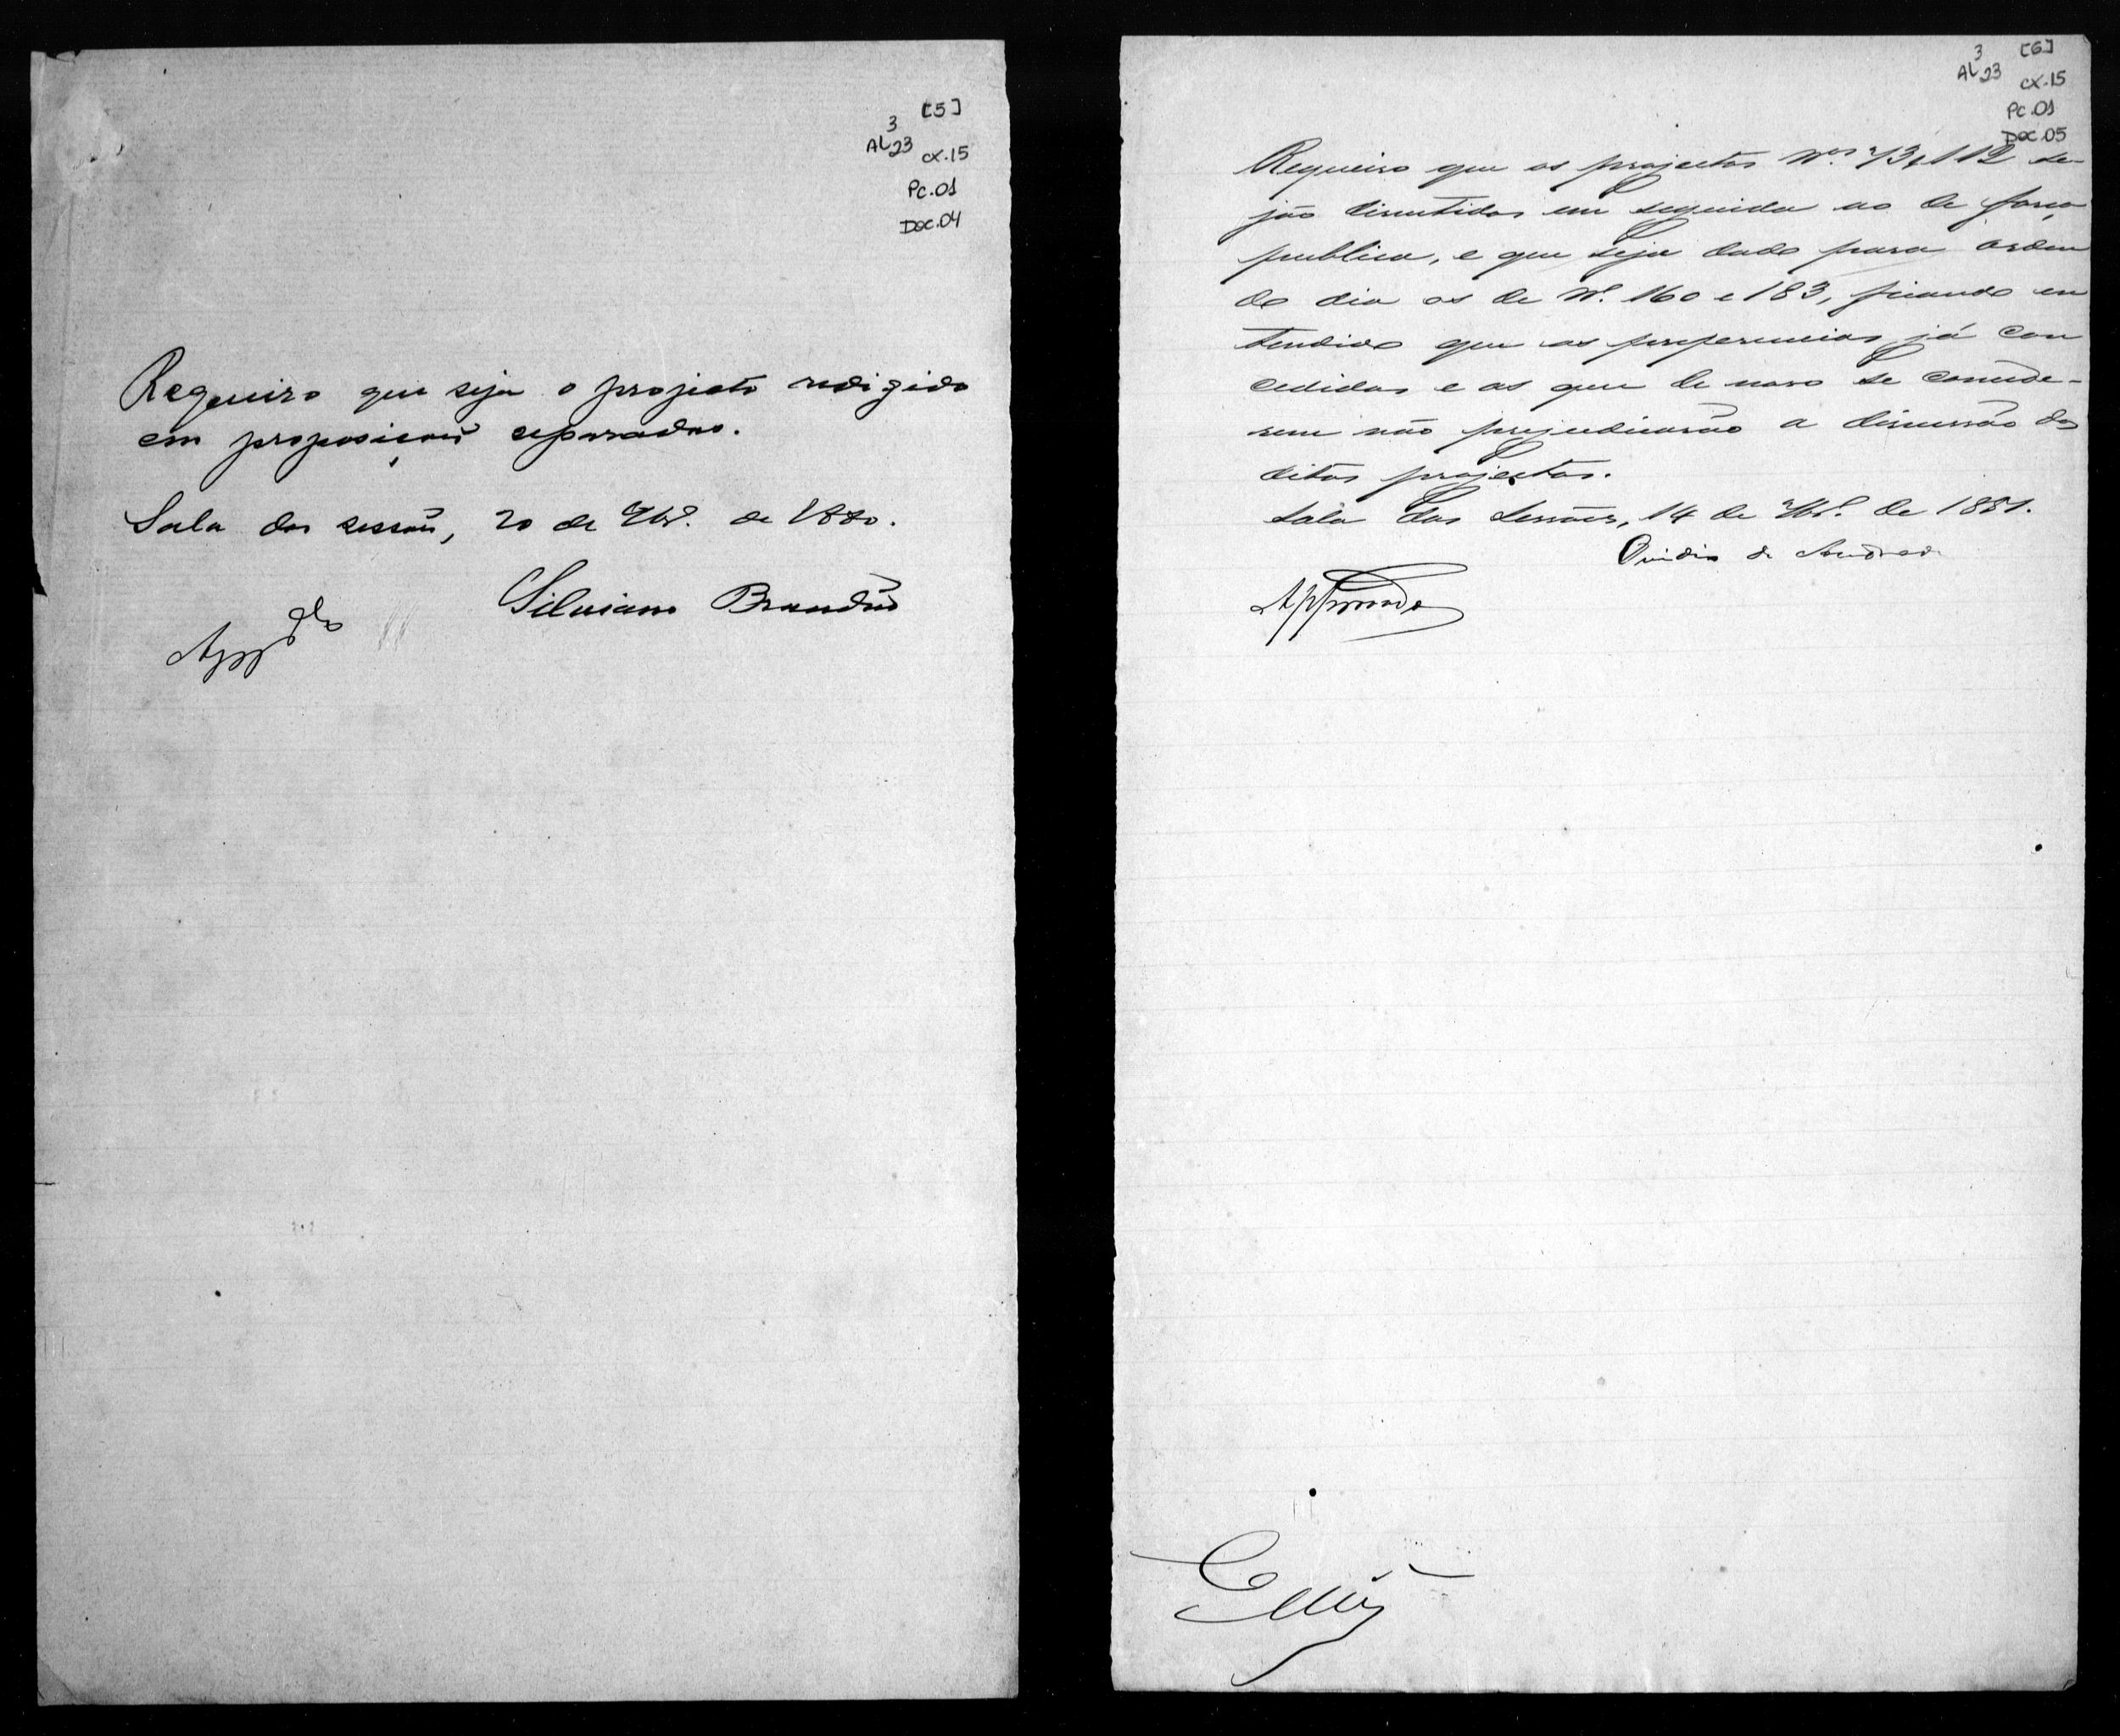 [5]
3
AL 23 cx.15
Pc.01
Doc.04
Requeiro que seja o projecto redigido
em proposiçoẽs separadas.
Sala das sessoẽs, 20 de 9br.º de 1880.
Silviano Brandão
App.do
[6]
3
AL 23 cx.15
Pc.01
Doc.05
Requeiro que os projectos N.os 73, 112 se-
jão discutidos em seguida ao de força
publica, e que seja dado para ordem
do dia os de N.º 160 e 183, ficando en
tendido que as preferencias já con
cedidas e as que de novo se concede-
rem não prejudicarão a discussão dos
ditos projectos.
Sala das Sessões, 14 de 9br.º de 1881.
Ovidio de Andrade
Approvado